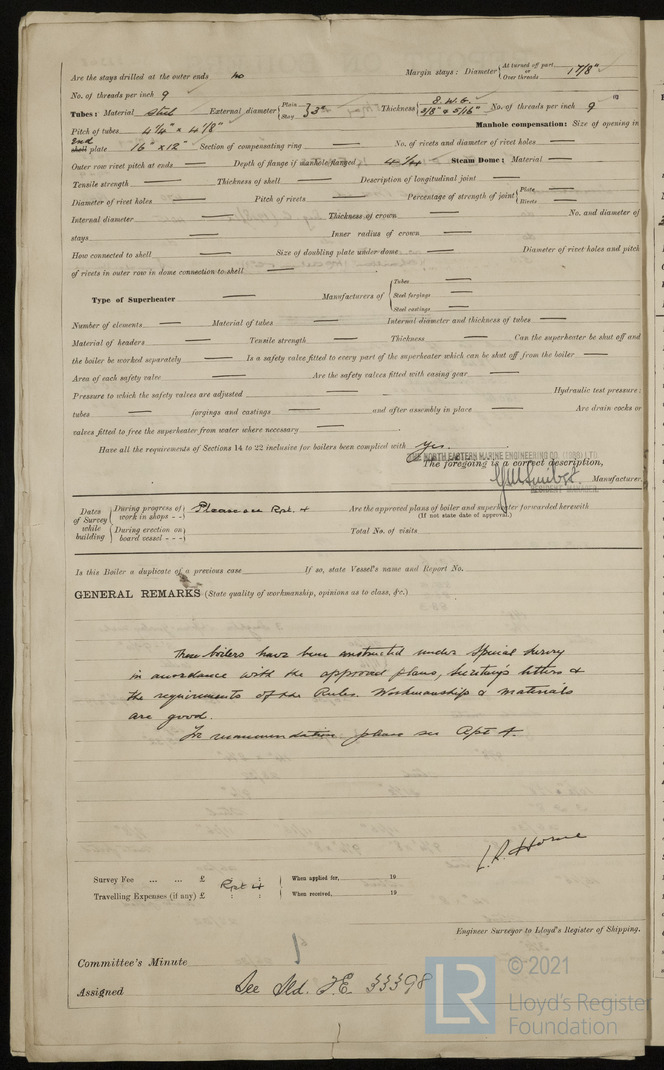 Are the stays drilled at the outer ends no Margin stays: Diameter { At turned off part or Over threads 1 7/8"
No. of threads per inch 9
Tubes: Material Steel External diameter { Plain Stay } 3" Thickness { 8 W.G. 3/8" & 5/16" No. of threads per inch 9
Pitch of tubes 4 1/4" x 4 1/8" Manhole compensation: Size of opening in
end shell plate 16" x 12" Section of compensating ring — No. of rivets and diameter of rivet holes —
Outer row rivet pitch at ends — Depth of flange if manhole flanged 4 1/4 Steam Dome: Material —
Tensile strength — Thickness of shell — Description of longitudinal joint —
Diameter of rivet holes — Pitch of rivets — Percentage of strength of joint { Plate — Rivets —
Internal diameter — Thickness of crown — No. and diameter of
stays — Inner radius of crown —
How connected to shell — Size of doubling plate under dome — Diameter of rivet holes and pitch
of rivets in outer row in dome connection to shell —
Type of Superheater — Manufacturers of { Tubes — Steel forgings — Steel castings —
Number of elements — Material of tubes — Internal diameter and thickness of tubes —
Material of headers — Tensile strength — Thickness — Can the superheater be shut off and
the boiler be worked separately — Is a safety valve fitted to every part of the superheater which can be shut off from the boiler —
Area of each safety valve — Are the safety valves fitted with easing gear —
Pressure to which the safety valves are adjusted — Hydraulic test pressure:
tubes — forgings and castings — and after assembly in place — Are drain cocks or
valves fitted to free the superheater from water where necessary —
Have all the requirements of Sections 14 to 22 inclusive for boilers been complied with Yes.
THE NORTH EASTERN MARINE ENGINEERING CO. (1938) LTD
The foregoing is a correct description,
Manufacturer.
RESIDENT MANAGER.
Dates of Survey while building { During progress of work in shops - - } Please see Rpt. 4 Are the approved plans of boiler and superheater forwarded herewith (If not state date of approval.)
{ During erection on board vessel - - - } Total No. of visits
Is this Boiler a duplicate of a previous case If so, state Vessel's name and Report No.
GENERAL REMARKS (State quality of workmanship, opinions as to class, &c.)
These boilers have been constructed under Special Survey
in accordance with the approved plans, Secretary's letters &
the requirements of the Rules. Workmanship & materials
are good.
For recommendation please see Rpt 4.
L. R. Horne
Survey Fee ... ... £ Rpt 4 : : { When applied for, 19
Travelling Expenses (if any) £ : : { When received, 19
Engineer Surveyor to Lloyd's Register of Shipping.
Committee's Minute
Assigned See Sld. F.E. 33398
LR
© 2021
Lloyd's Register
Foundation